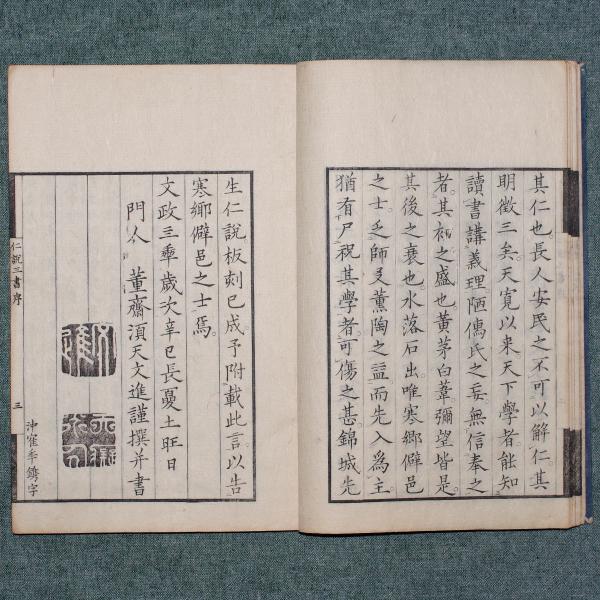 其仁也長人安民之不可以解仁其
明徵三矣天寛以来天下學者能知
讀書講義理陋儁氏之妄無信奉之
者其初之盛也黄茅白葦彌望皆是
其後之衰也水落石出唯寒郷僻邑
之士乏師友薫陶之益而先入為主
猶有尸祝其學者可傷之甚錦城先
生仁說板刻已成予附載此言以告
寒郷僻邑之士焉
文政三年歳次辛巳長夏土旺日
門人 董齋須天文進謹撰并書
仁說三書序
三